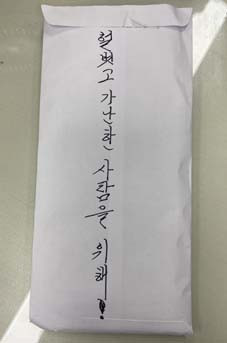 헐벗고 가난한 사람을 위해!